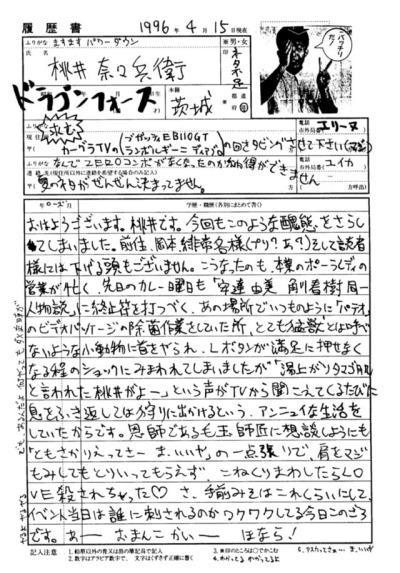 履歴書
1996年4月15日現在
バッチリだ!
ふりがな ますますパワーダウン
男・女
氏名 桃井奈々兵衛
印
ネタ不足
ドラゴンフォース
本籍
茨城
都道府県
ふりがな
求む
ブガッティEB110GT
カーグラTVの
の回をダビングさせて下さい
ランボルギーニディアブロ
電話
市外局番
エリーヌ
なんで
がなくなったのか納得ができません
電話
市外局番
ユイカ
連絡先(現住所以外に連絡を希望する場合のみ記入)
夏のネタがぜんぜん決まってません。
方呼出
年
学歴・職歴(各別にまとめて書く)
おはようございます。桃井です。今回もこのような醜態をさらし
てしまいました。前任、岡本、緋帯名様(プリ?あ?)そして読者
様には下げる頭もございません。こうなったのも、本業のポーラレディの
営業が忙しく、先日のカレー曜日も"安達由美 角川春樹同一
人物説"に終止符を打つべく、あの場所でいつものように「パテオ」
のビデオパッケージの除菌作業をしていた所、とても猛獣とは呼べ
ないような小動物に首をやられ、Lボタンが満足に押せなく
なる程のショックにみまわれてしまいましたが"湯上がりタマゴ肌
と言われた桃井がよー"という声がTVから聞こえてくるたびに
息をふき返しては狩りに出かけるという、アンニュイな生活を
していたからです。恩師である毛玉師匠に相談しようにも
"ともさかりえってさー ま、いいや"の一点張りで、肩をマジ
もみしてもとりいってもらえず、こねくりまわしたらLO
VE殺されちゃった♡ さ、手前みそはこれくらいにして、
イベント当日は誰に刺されるのかワクワクしてる今日このごろ
です。あー おまんこかい― ほなら!
記入注意
1.鉛筆以外の青又は黒の筆記具で記入
2.数字はアラビア数字で、文字はくずさず正確に書く
3.※印のところは○でかこむ